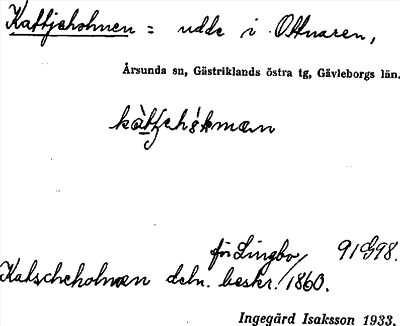 Kattjeholmen = udde i Ottnaren,
Årsunda sn, Gästriklands östra tg, Gävleborgs län.
för Lingbo 91998.
Katscheholmen deln. beskr. 1860.
Ingegärd Isaksson 1933.